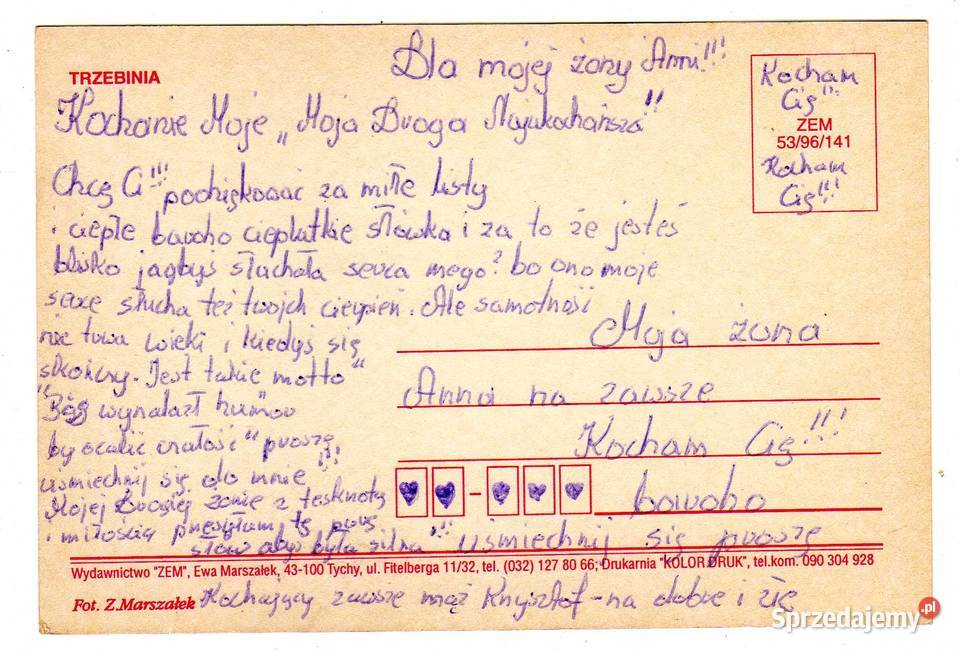 Dla mojej żony Anni!!!
TRZEBINIA
Kochanie Moje „Moja Droga Najukochańsza"
Kocham
Cię!!!
ZEM
53/96/141
Kocham
Cię!!!
Chcę Ci!!! podziękować za miłe listy
i ciepłe bardzo cieplutkie słówka i za to że jesteś
blisko jagbyś słuchała serca mego? bo ono moje
serce słucha też twojch cierpień. Ale samotność
nie trwa wieki i kiedyś się
skończy. Jest takie motto"
"Bóg wynalazł humor
by ocalić" proszę,
uśmiechnij się do mnie!!!
Mojej Drogiej żonie z tesknotą
i miłością przesyłam tę parę
słów abyś była silna"!!! uśmiechnij się proszę
Moja żona
Anna na zawsze
Kocham Cię!!!
bardzo
Wydawnictwo "ZEM", Ewa Marszałek, 43-100 Tychy, ul. Fitelberga 11/32, tel. (032) 127 80 66; Drukarnia "KOLOR DRUK", tel.kom. 090 304 928
Fot. Z.Marszałek
Kochający zawsze mąż Krzysztof - na dobre i złe
Sprzedajemy.pl